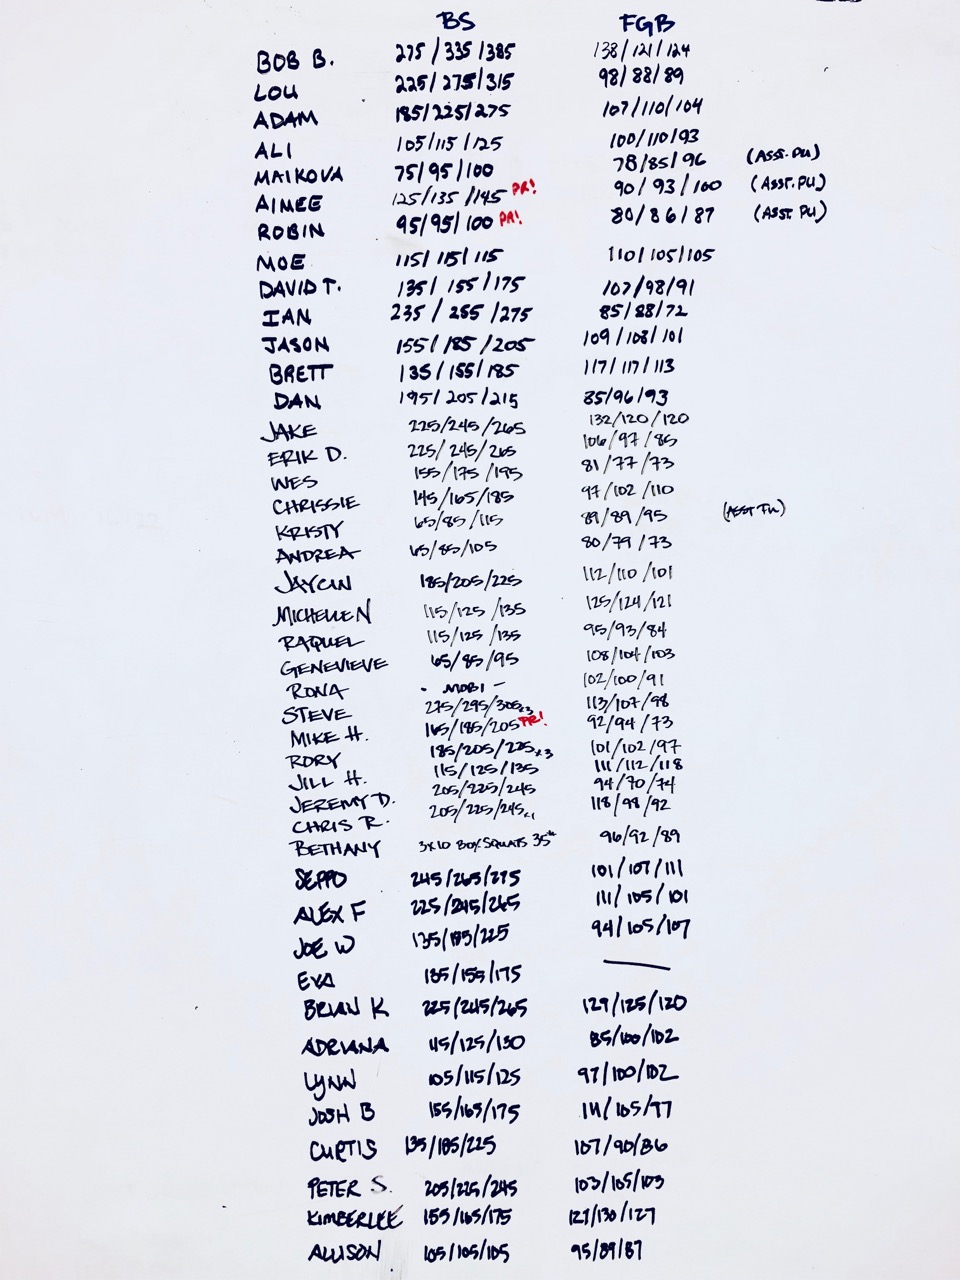 BS FGB
BOB B. 275/335/385 138/121/124
LOU 225/275/315 98/88/89
ADAM 185/225/275 107/110/104
ALI 105/115/125 100/110/93
MAIKOVA 75/95/100 78/85/96 (ASST. PU)
AIMEE 125/135/145 PR! 90/93/100 (ASST. PU)
ROBIN 95/95/100 PR! 80/86/87 (ASST PU)
MOE 115/115/115 110/105/105
DAVID T. 135/155/175 107/98/91
IAN 235/255/275 85/88/72
JASON 155/185/205 109/108/101
BRETT 135/155/185 117/117/113
DAN 195/205/215 85/96/93
JAKE 225/245/265 132/120/120
ERIK D. 225/245/265 106/97/85
WES 155/175/195 81/77/73
CHRISSIE 145/165/185 97/102/110
KRISTY 65/85/115 89/89/95 (ASST PU)
ANDREA 65/85/105 80/79/73
JAYCIN 185/205/225 112/110/101
MICHELLE N 115/125/135 125/124/121
RAQUEL 115/125/135 95/93/84
GENEVIEVE 65/85/95 108/104/103
RONA - MOBI - 102/100/91
STEVE 275/295/305x3 113/107/98
MIKE H. 165/185/205 PR! 92/94/73
RORY 185/205/225x3 101/102/97
JILL H. 115/125/135 111/112/118
JEREMY D. 205/225/245 94/70/74
CHRIS R. 205/225/245x1 118/98/92
BETHANY 3x10 BOX SQUATS 35# 96/92/89
SEPPO 245/265/275 101/107/111
ALEX F 225/245/265 111/105/101
JOE W 135/185/225 94/105/107
EVA 135/155/175 —
BRIAN K 225/245/265 129/125/120
ADRIANA 115/125/130 85/100/102
LYNN 105/115/125 97/100/102
JOSH B 155/165/175 111/105/97
CURTIS 135/185/225 107/90/86
PETER S. 205/225/245 103/105/103
KIMBERLEE 155/165/175 127/130/127
ALLISON 105/105/105 95/89/87